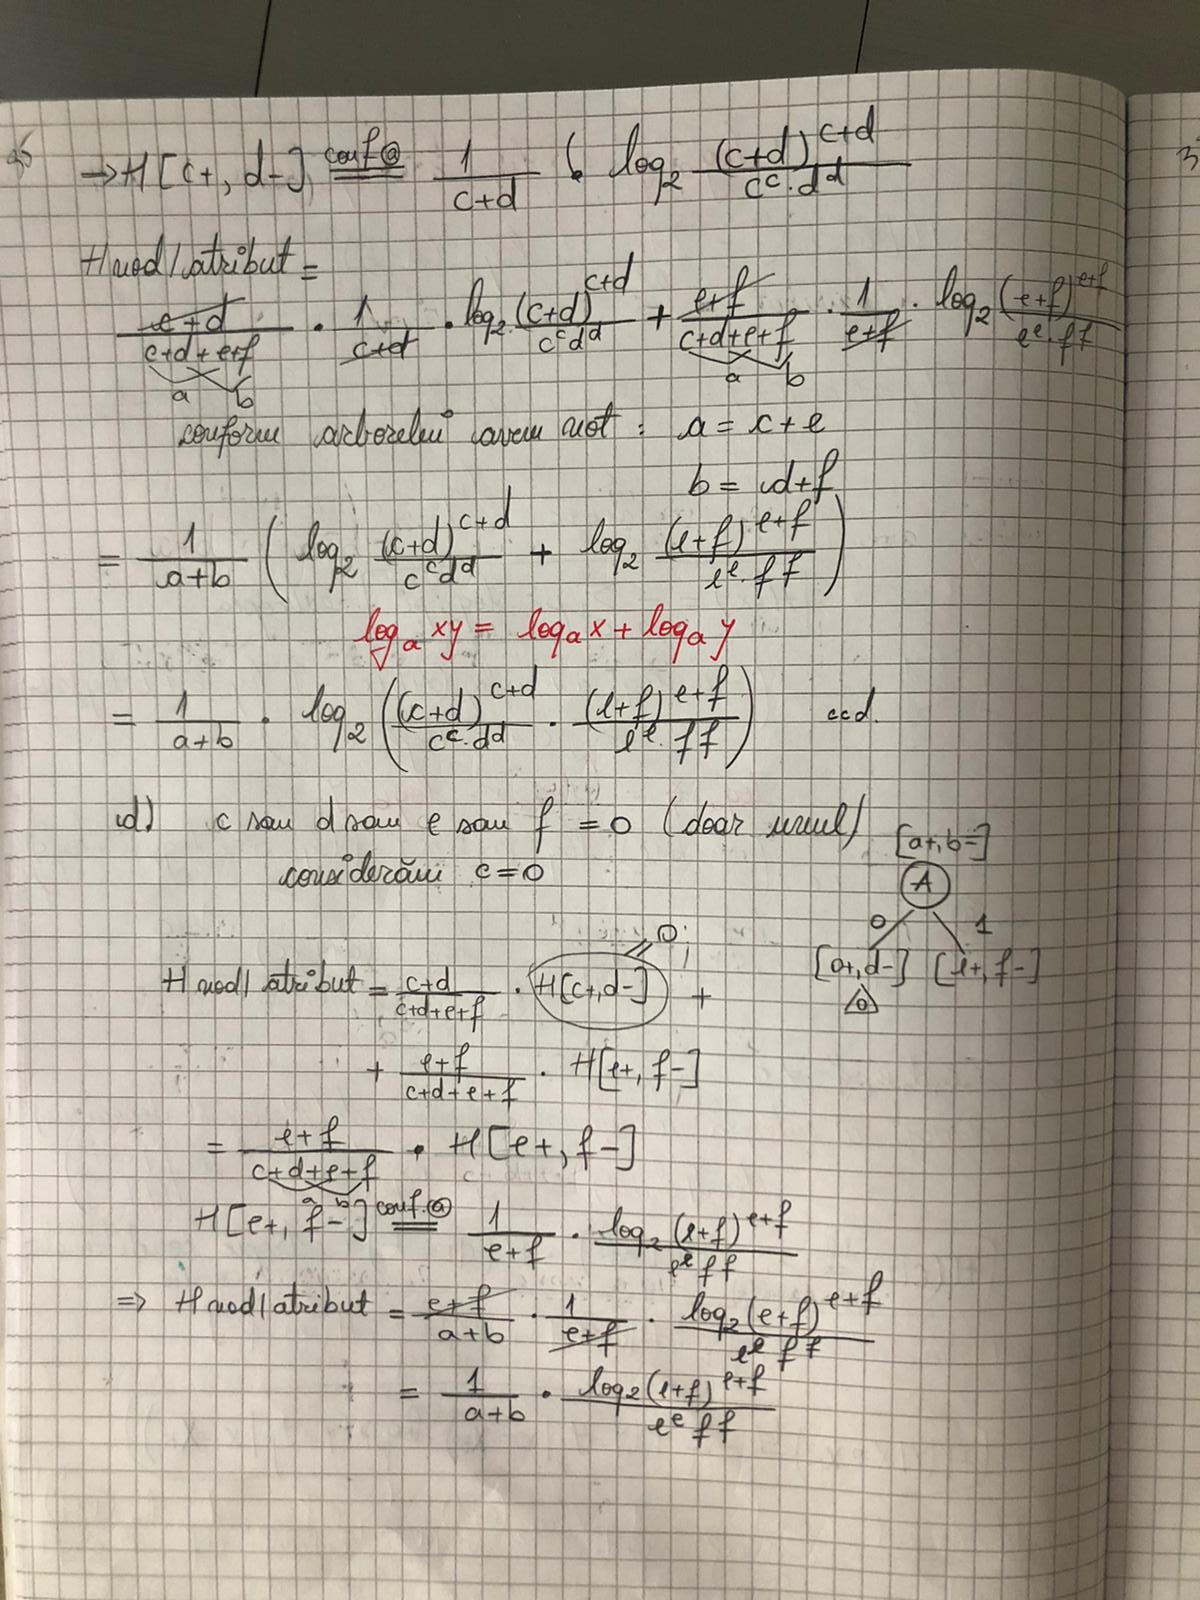 → H[c+, d-] conf ⓐ = 1/(c+d) · log₂ (c+d)^(c+d)/(c^c · d^d)
H nod/atribut =
(c+d)/(c+d+e+f) · 1/(c+d) · log₂ (c+d)^(c+d)/(c^c d^d) + (e+f)/(c+d+e+f) · 1/(e+f) · log₂ (e+f)^(e+f)/(e^e · f^f)
a b a b
conform arborelui avem not: a = c+e
b = d+f
= 1/(a+b) ( log₂ (c+d)^(c+d)/(c^c d^d) + log₂ (e+f)^(e+f)/(e^e · f^f) )
logₐ xy = logₐ x + logₐ y
= 1/(a+b) · log₂ ( (c+d)^(c+d)/(c^c · d^d) · (e+f)^(e+f)/(e^e · f^f) ) ccd.
d) c sau d sau e sau f = 0 (doar unul)
[a+, b-]
considerăm c=0
A
0 1
[0+, d-] [e+, f-]
0
= 0
H nod/atribut = (c+d)/(c+d+e+f) · H[c+, d-] +
+ (e+f)/(c+d+e+f) · H[e+, f-]
= (e+f)/(c+d+e+f) · H[e+, f-]
a b
H[e+, f-] conf. ⓐ = 1/(e+f) · log₂ (e+f)^(e+f)/(e^e f^f)
⇒ H nod/atribut = (e+f)/(a+b) · 1/(e+f) · log₂ (e+f)^(e+f)/(e^e f^f)
= 1/(a+b) · log₂ (e+f)^(e+f)/(e^e f^f)